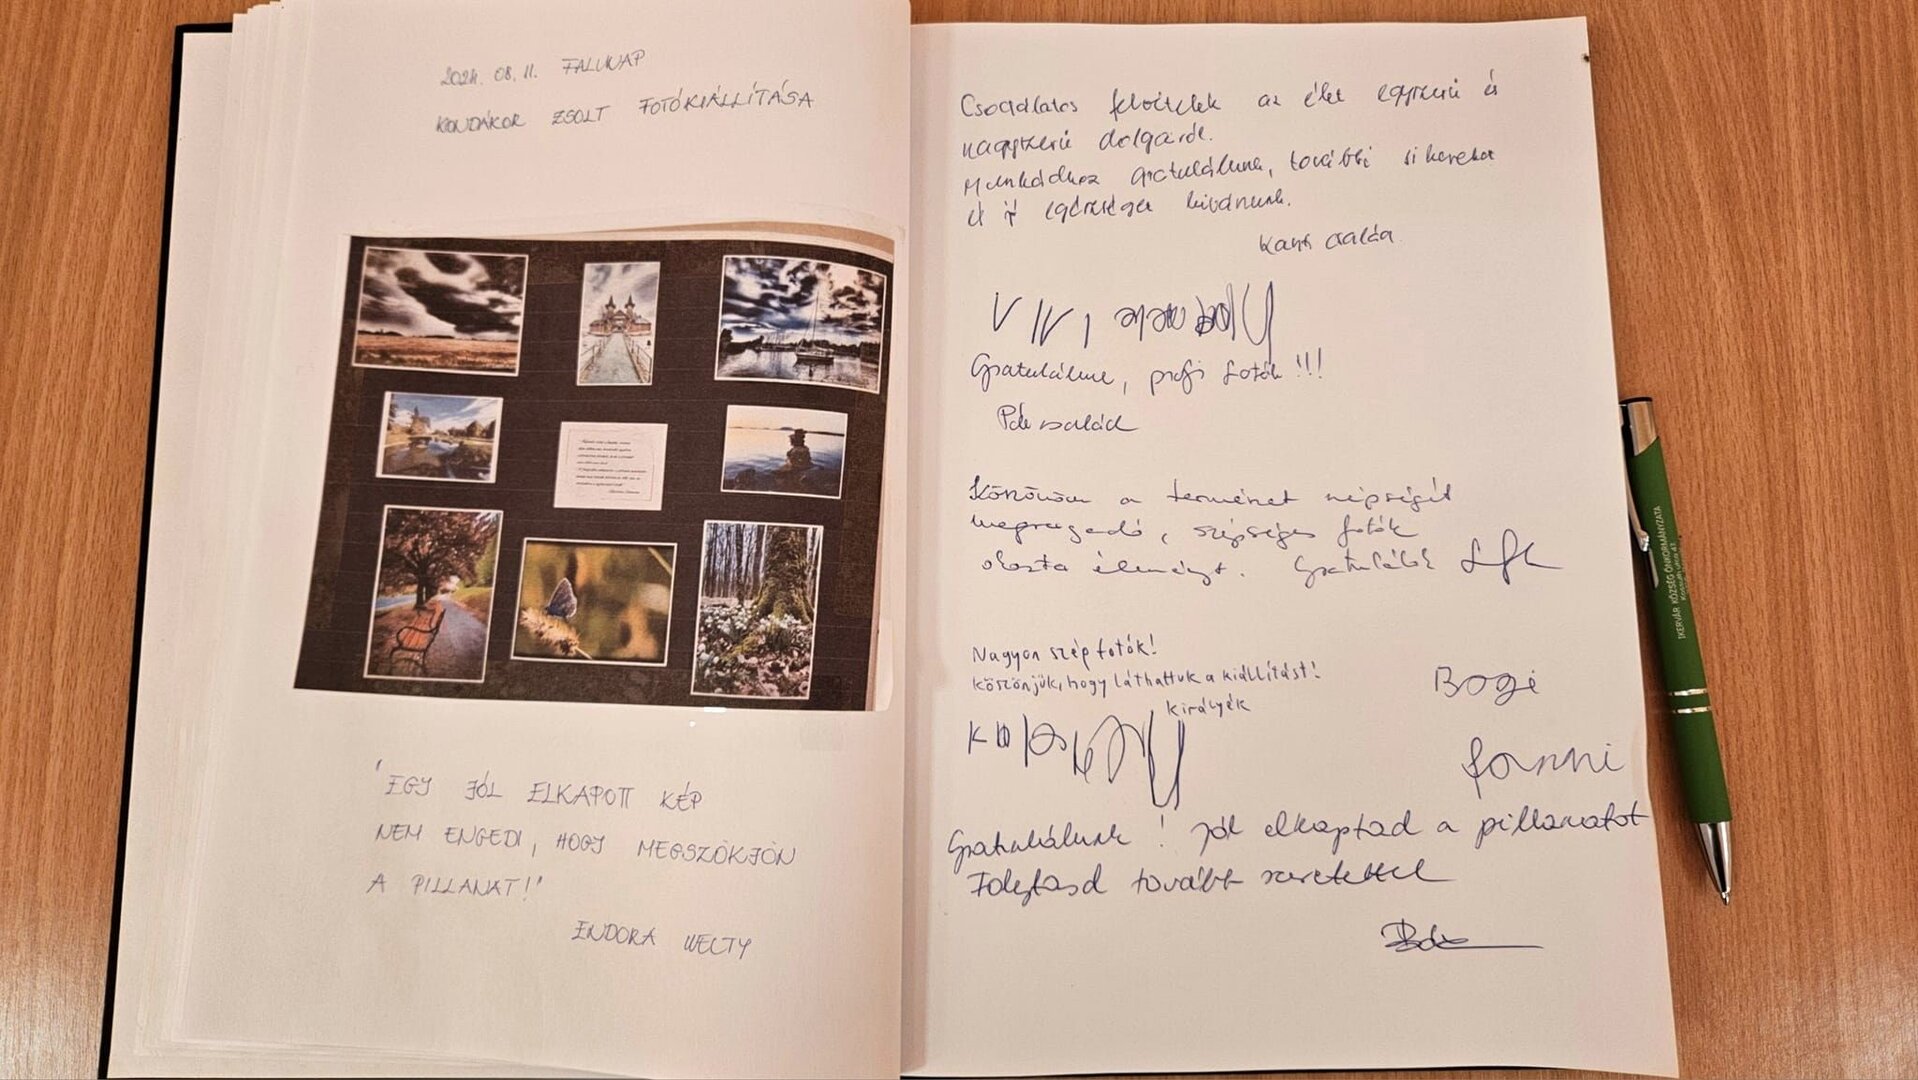 2024. 08. 11. FALUNAP
KONDÁKOR ZSOLT FOTÓKIÁLLÍTÁSA
"EGY JÓL ELKAPOTT KÉP
NEM ENGEDI, HOGY MEGSZÖKJÖN
A PILLANAT!"
ENDORA WELTY
Csodálatos felvételek az élet egyszerű és
nagyszerű dolgairól.
Munkádhoz gratulálunk, további sikereket
és jó egészséget kívánunk.
család
Gratulálunk, profi fotók!!!
család
Köszönöm a természet szépségét
megragadó, szépséges fotók
okozta élményt. Gratulálok
Nagyon szép fotók!
Köszönjük, hogy láthattuk a kiállítást!
Királyék
Bogi
Fanni
Gratulálunk! Jól elkaptad a pillanatot
Folytasd tovább szeretettel
IKERVÁR KÖZSÉG ÖNKORMÁNYZATA